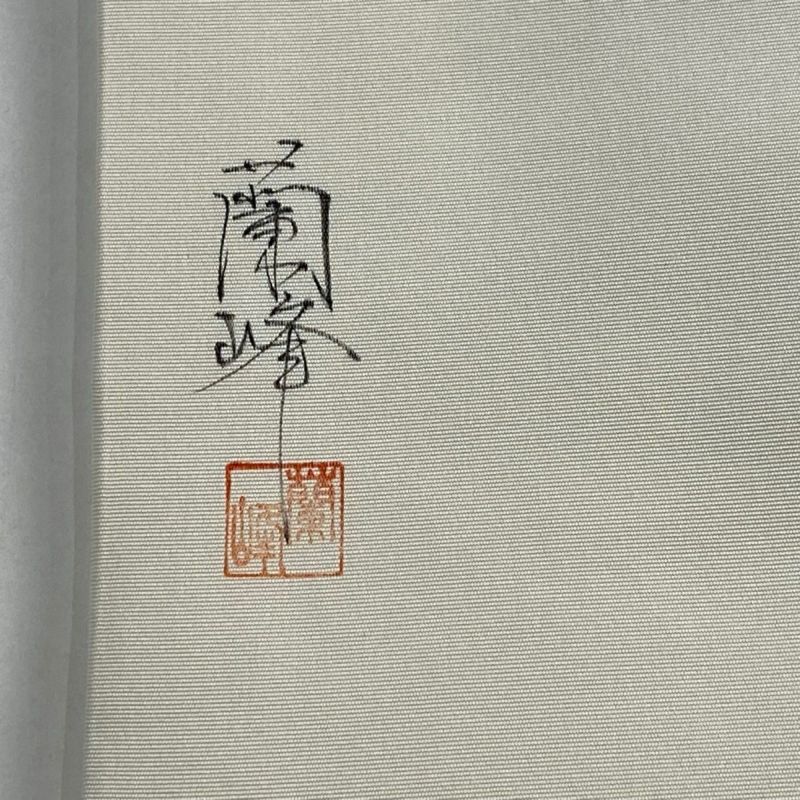 蘭峰
蘭峰